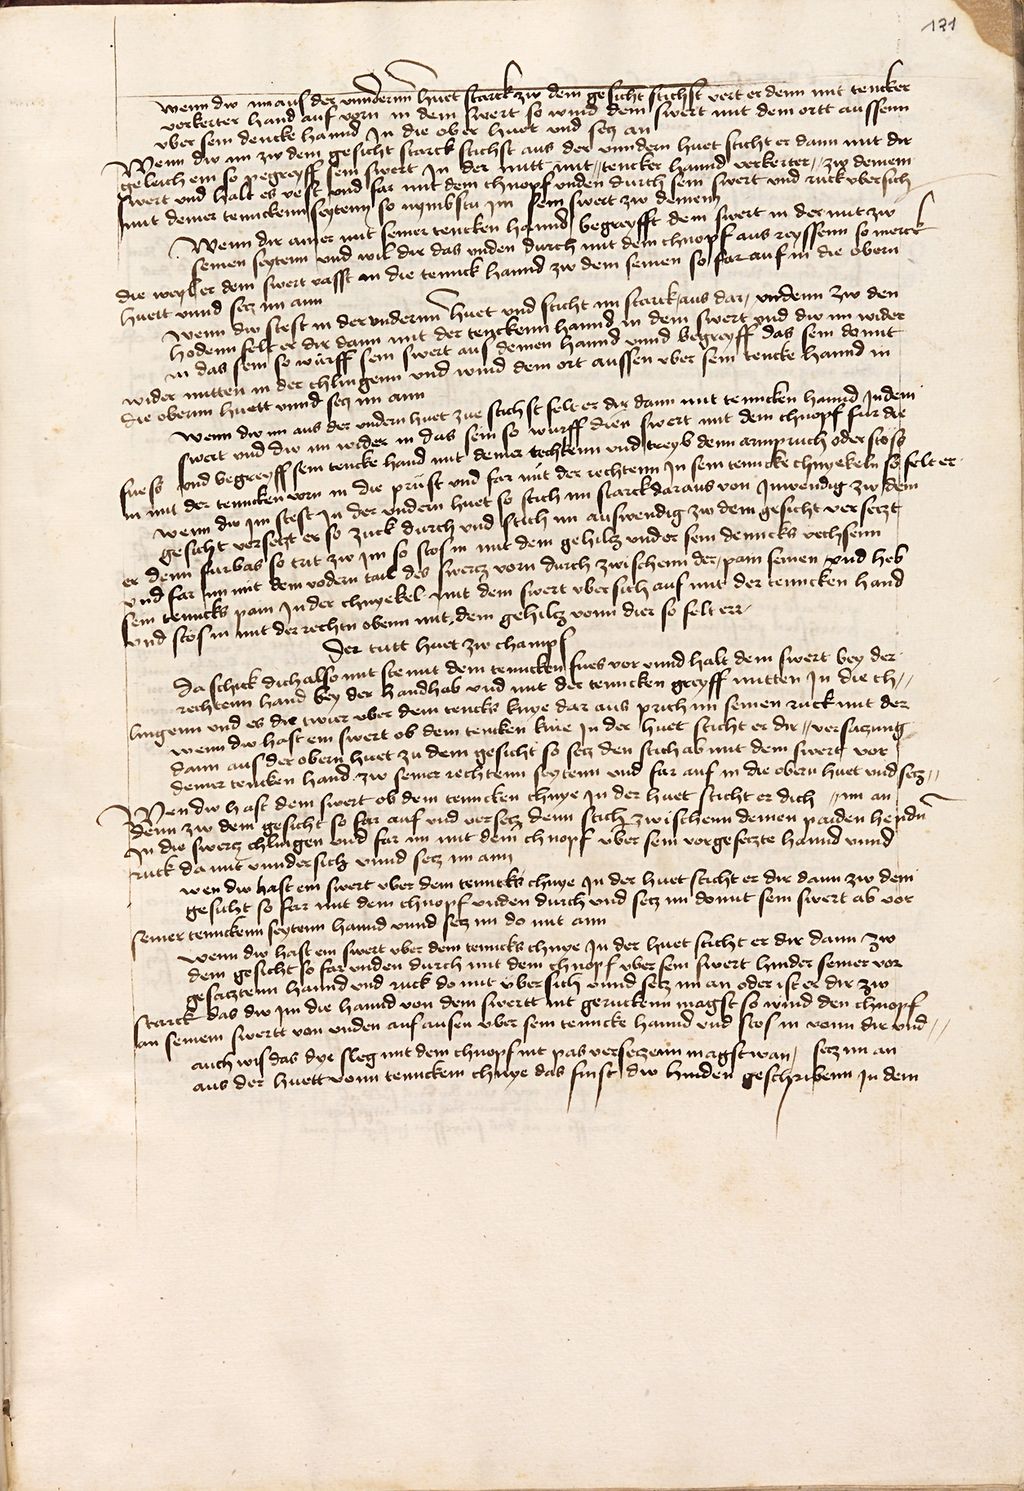 171
wenn dw im aus der vnndernn huet starck zw dem gesicht stichst vert er denn mit tencker
verkerter hand auf vorn in dem swert so wind dem swert mit dem ortt aussenn
vber sein dencke hannd In die ober huet vnd secz an
Wenn dw im zw dem gesicht starck stichst aus der vnndern huet sticht er dann mit dir
geleich ein so pegreyff sein swert In der mitt mit tencker hannd verkerter zw deinem
swert vnd halt es vest vnd far mit dem chnopf vnden durch sein swert vnd ruck vbersich
mit deiner tennckenn seytenn so nymbstu im sein swert zw deinem
Wenn dir ainer mit seiner tencken hannd begreyfft dein swert in der mit zw
seinen seytenn vnd wil dir das vnden durch mit dem chnopf aus reyssenn so merck
die weyl er dein swert vasst in die tennck hannd zw dem seinen so far auf in die obern
huett vnnd secz im ann
Wenn dw stest in der vndernn huet vnd sticht im starck aus dar vndenn zw den
hodenn felt er dir dann mit der tenckenn hannd in dein swert vnd dw im wider
in das sein so wurff sein swert aus deinen hannd vnnd begreyff das sein do mit
wider mitten in der chlingenn vnd wind dein ort aussen vber sein tencke hannd in
die obernn huett vnnd secz im ann
Wenn dw im aus der vndern huet zue stichst felt er dir dann mit tenncken hannd In dein
swert vnd dw im wider in das sein so wurff dein swert mit dem chnopf fur die
fuess vnd begreyff sein tencke hand mit deiner rechtenn vnd treyb denn armpruch oder stoss
in mit der tenncken vorn in die prust vnd far mit der rechtenn In sein tenncke chnyekeln so felt er
wenn dw Im stest In der vndern huet so stich im starck daraus von Inwendig zw dem
gesicht versetzt er so zuck durch vnd stich im auswendig zw dem gesicht versetzt
er denn furbas so trit zw im so stos in mit dem gehilcz vnder sein denncks vechsenn
vnd far im mit dem vodern tail des swercz vorn durch zwischenn der pain seinen vnd heb
sein tenncks pain In der chnyekel mit dem swert vbersich auf mit der tenncken hand
vnd stos in mit der rechtn obenn mit dem gehilcz vonn dier so felt err
Der tritt huet zw champf
Da schick dich also mit ste mit dem tenncken fues vor vnnd halt dein swert bey der
rechtenn hand bey der handhab vnd mit der tenncken greyff mitten In die ch
lingenn vnd es dir twir vber dein tencks knye dar aus prich im seinen ruck mit der
wenn dw hast ein swert ob dem tencken knie In der huet sticht er dir versaczung
dann aus der obern huet zu dem gesicht so secz den stich ab mit dem swert vor
deiner tencken hand zw seiner rechtenn seytenn vnd far auf in die obern huet vnd secz
Wen dw hast dein swert ob dem tenncken chnye In der huet sticht er dich im an
denn zw dem gesicht so far auf vnd versecz denn stich zwischenn deinen paiden hendn
In die swercz chlingen vnd far im mit dem chnopf vber sein vorgesetzte hannd vnnd
ruck da mit vnndersich vnnd secz im ann
wen dw hast ein swert vber dem tenncks chnye In der huet sticht er dir dann zw dem
gesicht so far mit dem chnopf vnden durch vnd secz im domit sein swert ab vor
seiner tennckenn seytenn hannd vnnd secz im do mit ann
wenn dw hast ein swert vber dem tenncks chnye In der huet sticht er dir dann zw
dem gesicht so far vnden durch mit dem chnopf vber sein swert hinder seiner vor
gesatztenn hannd vnd ruck do mit vbersich vnnd secz im an oder ist er dir zw
starck das dw im die hannd von dem swertt nit geruckenn magst so wind den chnopf
an seinem swertt von vnden auf ausen vber sein tenncke hannd vnd stos in vonn dir vnd
auch wis das dye sleg mit dem chnopf nit pas versetzenn magst wan secz im an
aus der huett vonn tennckem chnye das finst dw hinden geschribenn In dem